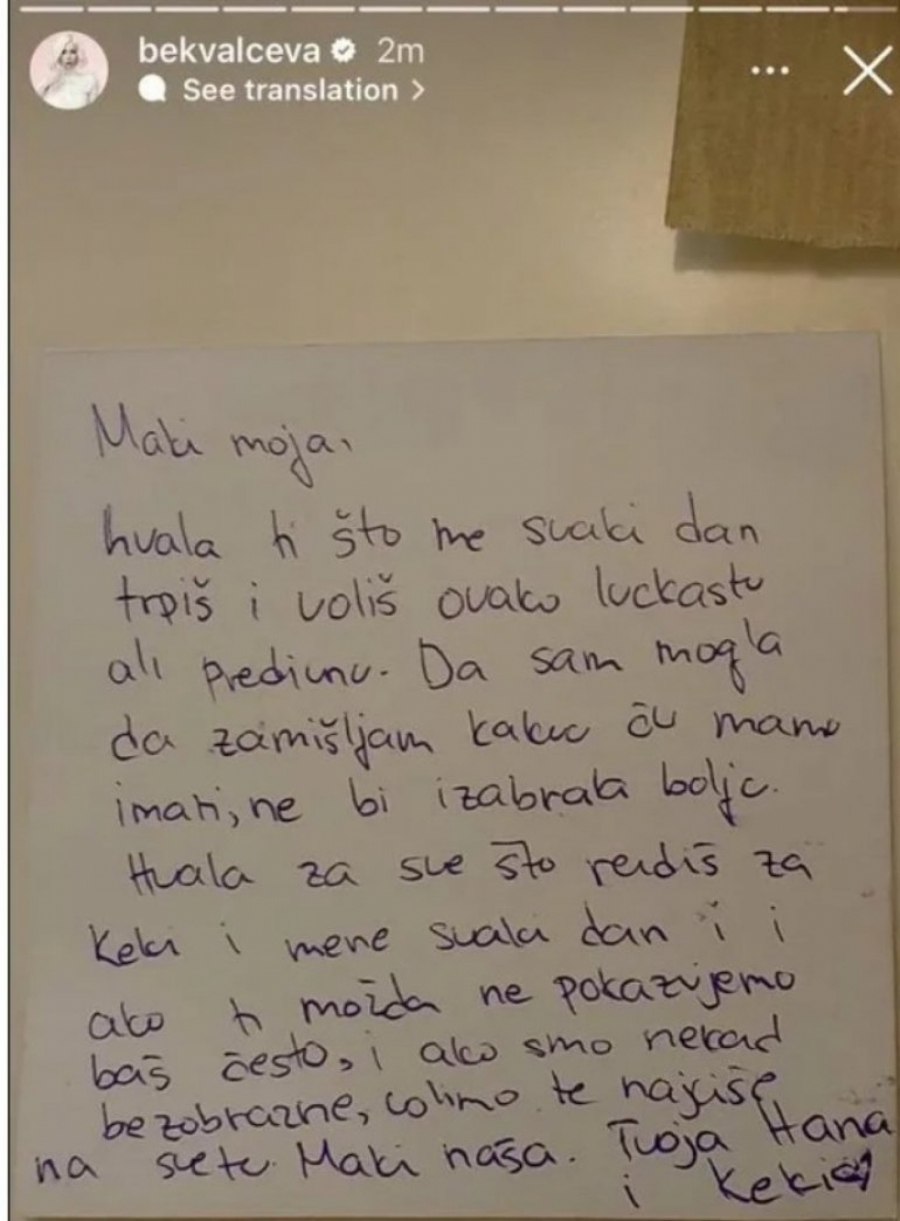 bekvalceva 2m
See translation >
Maki moja,
hvala ti što me svaki dan
trpiš i voliš ovako luckastu
ali predivnu. Da sam mogla
da zamišljam kakvu ću mamu
imati, ne bi izabrala bolju.
Hvala za sve što radiš za
Keki i mene svaki dan i i
ako ti možda ne pokazujemo
baš često, i ako smo nekad
bezobrazne, volimo te najviše
na svetu. Maki naša. Tvoja Hana
i Keki